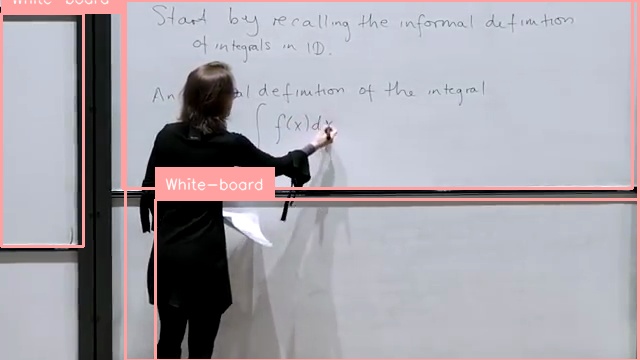 White-board
Start by recalling the informal definition
of integrals in 1D.
An definition of the integral
∫ f(x)dx
White-board